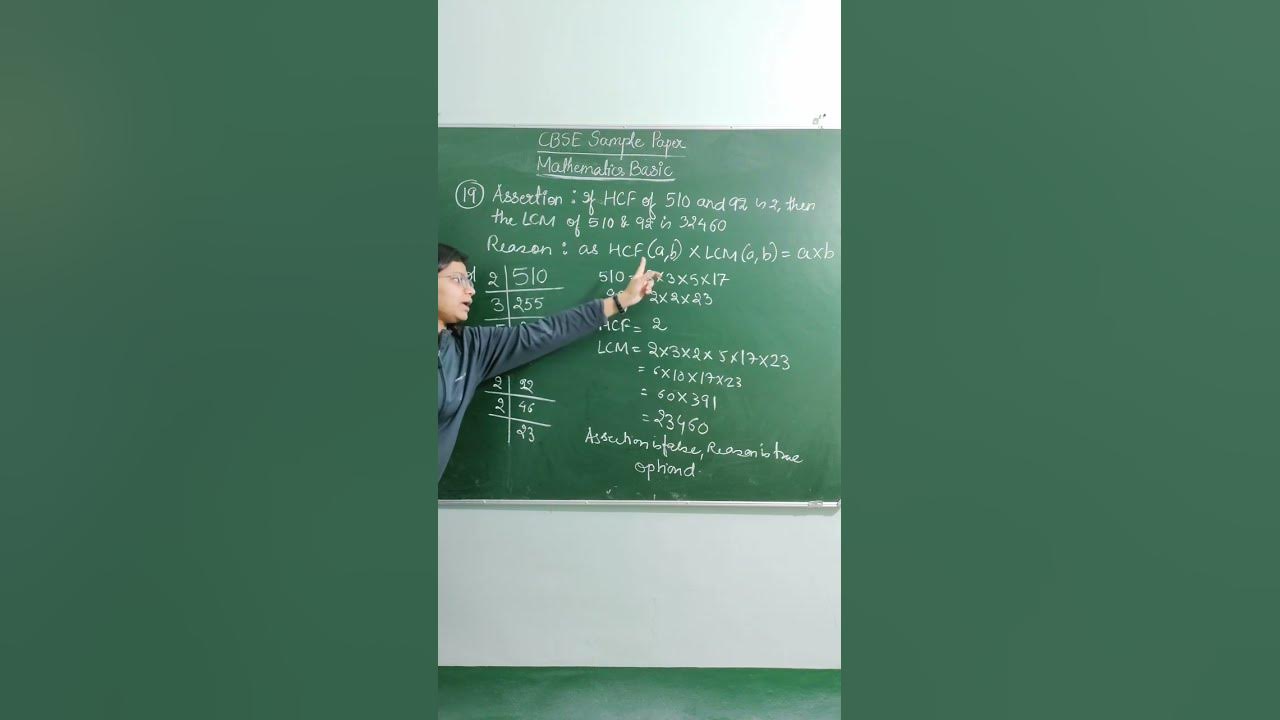 CBSE Sample Paper
Mathematics Basic
19 Assertion : If HCF of 510 and 92 is 2, then
the LCM of 510 & 92 is 32460
Reason : as HCF(a,b) × LCM(a,b) = a×b
2 | 510
3 | 255
2 | 92
2 | 46
23
510 = ×3×5×17
2×2×23
HCF = 2
LCM = 2×3×2×5×17×23
= 6×10×17×23
= 60×391
= 23460
Assertion is false, Reason is true
option d.